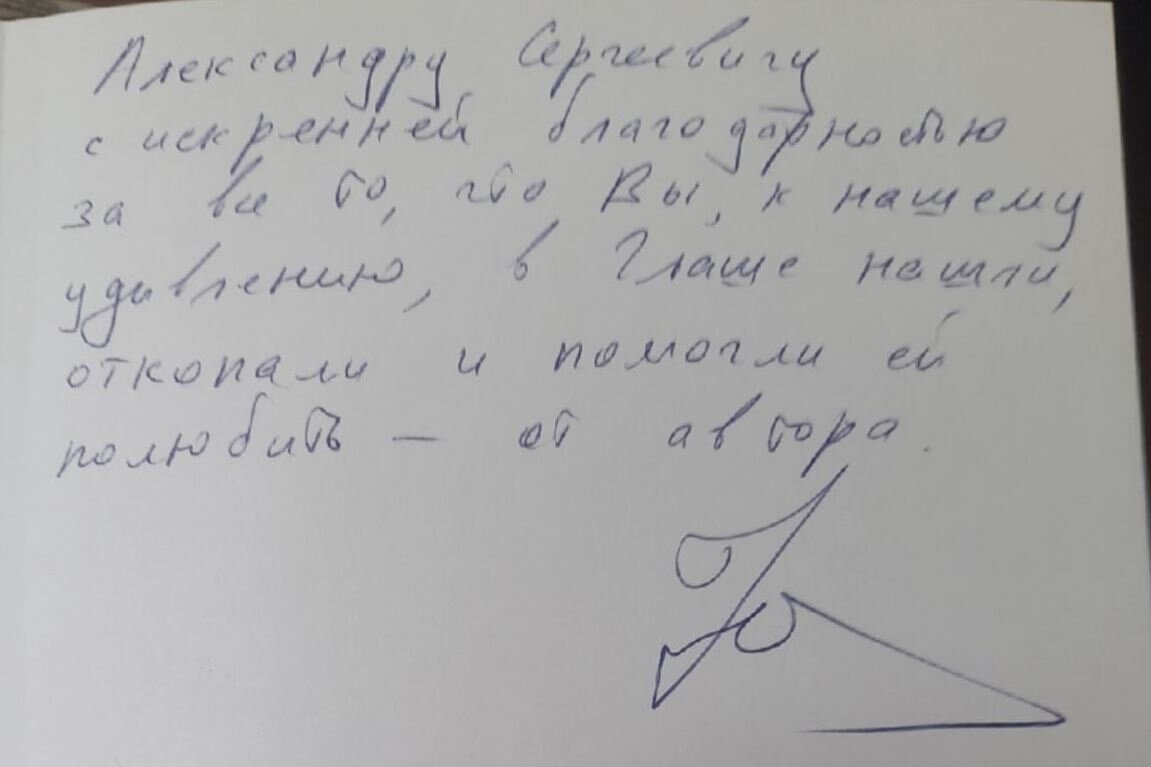 Александру Сергеевичу
с искренней благодарностью
за все то, что Вы, к нашему
удивлению, в Глаше нашли,
откопали и помогли ей
полюбить — от автора.